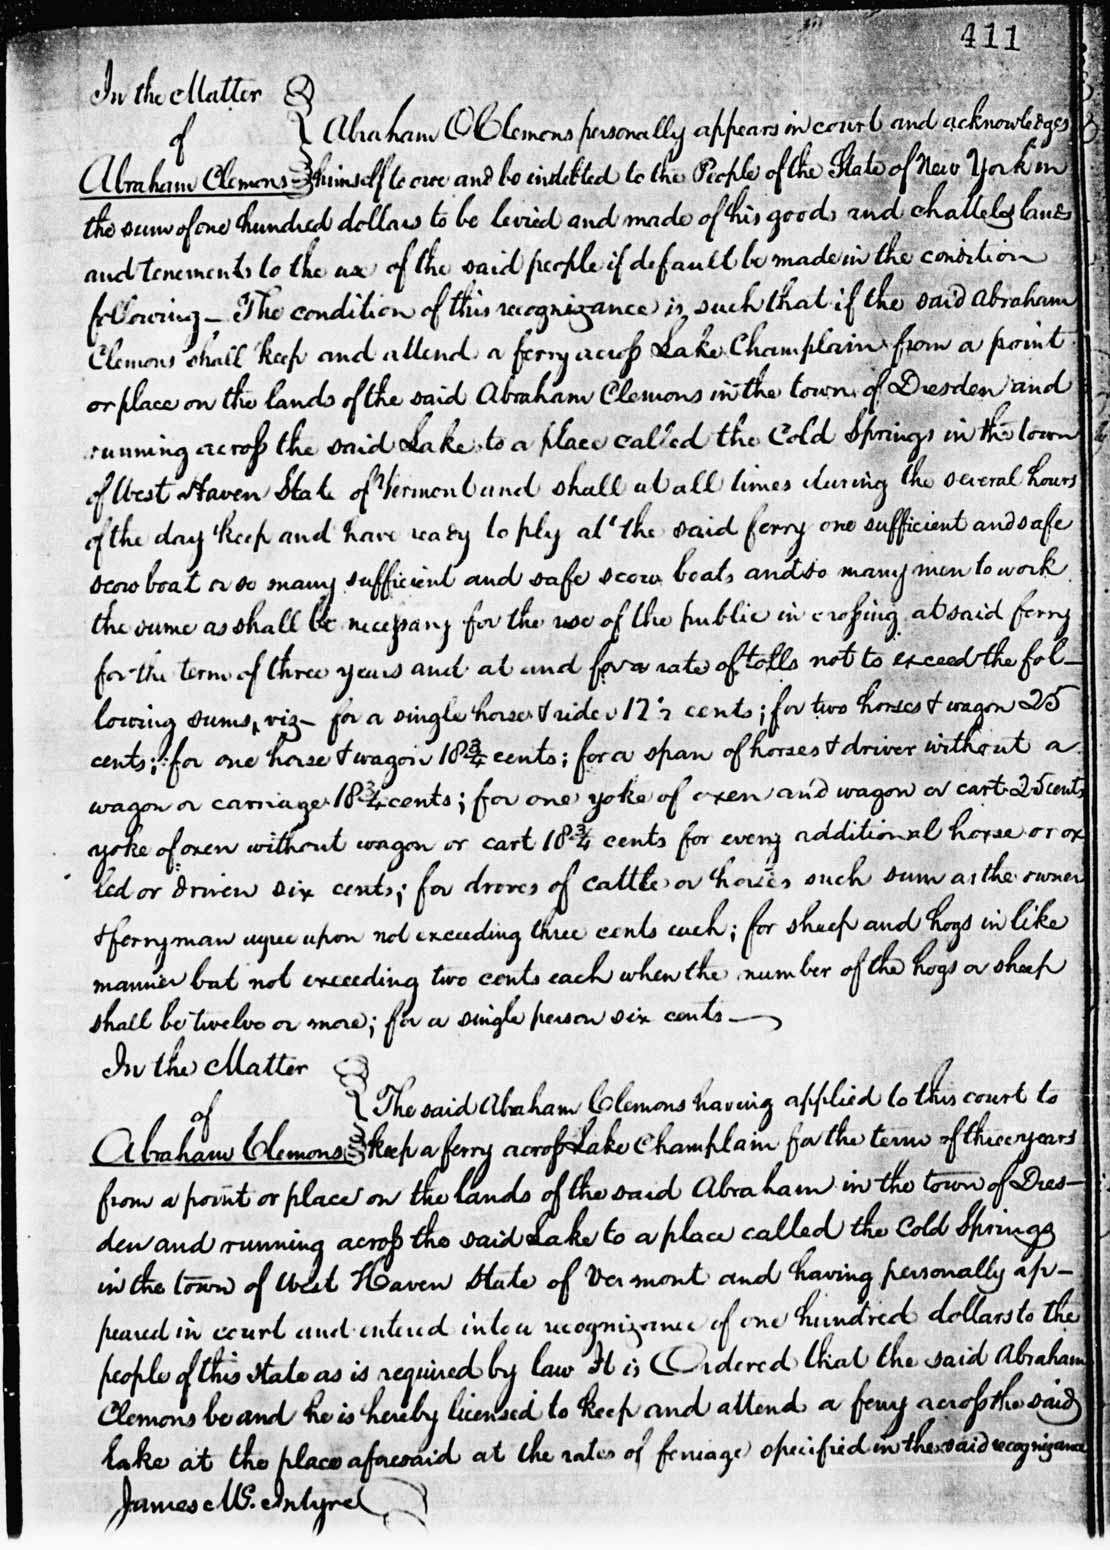 411
In the Matter
of
Abraham Clemons
Abraham Clemons personally appears in court and acknowledges
himself to owe and be indebted to the People of the State of New York in
the sum of one hundred dollars to be levied and made of his goods and chattels lands
and tenements to the use of the said people if default be made in the condition
following – The condition of this recognizance is such that if the said Abraham
Clemons shall keep and attend a ferry across Lake Champlain from a point
or place on the lands of the said Abraham Clemons in the town of Dresden and
running across the said Lake to a place called the Cold Springs in the town
of West Haven State of Vermont and shall at all times during the several hours
of the day keep and have ready to ply at the said ferry one sufficient and safe
scow boat or so many sufficient and safe scow boats and so many men to work
the same as shall be necessary for the use of the public in crossing at said ferry
for the term of three years and at and for a rate of tolls not to exceed the fol–
lowing sums, viz – for a single horse & rider 12½ cents; for two horses & wagon 25
cents; for one horse & wagon 18¾ cents; for a span of horses & driver without a
wagon or carriage 18¾ cents; for one yoke of oxen and wagon or cart 25 cents
yoke of oxen without wagon or cart 18¾ cents for every additional horse or ox
led or driven six cents; for droves of cattle or horses such sum as the owner
& ferryman agree upon not exceeding three cents each; for sheep and hogs in like
manner but not exceeding two cents each when the number of the hogs or sheep
shall be twelve or more; for a single person six cents —
In the Matter
of
Abraham Clemons
The said Abraham Clemons having applied to this court to
keep a ferry across Lake Champlain for the term of three years
from a point or place on the lands of the said Abraham in the town of Dres–
den and running across the said Lake to a place called the Cold Springs
in the town of West Haven State of Vermont and having personally ap–
peared in court and entered into a recognizance of one hundred dollars to the
people of this state as is required by law It is Ordered that the said Abraham
Clemons be and he is hereby licensed to keep and attend a ferry across the said
Lake at the place aforesaid at the rates of ferriage specified in the said recognizance
James McIntyre